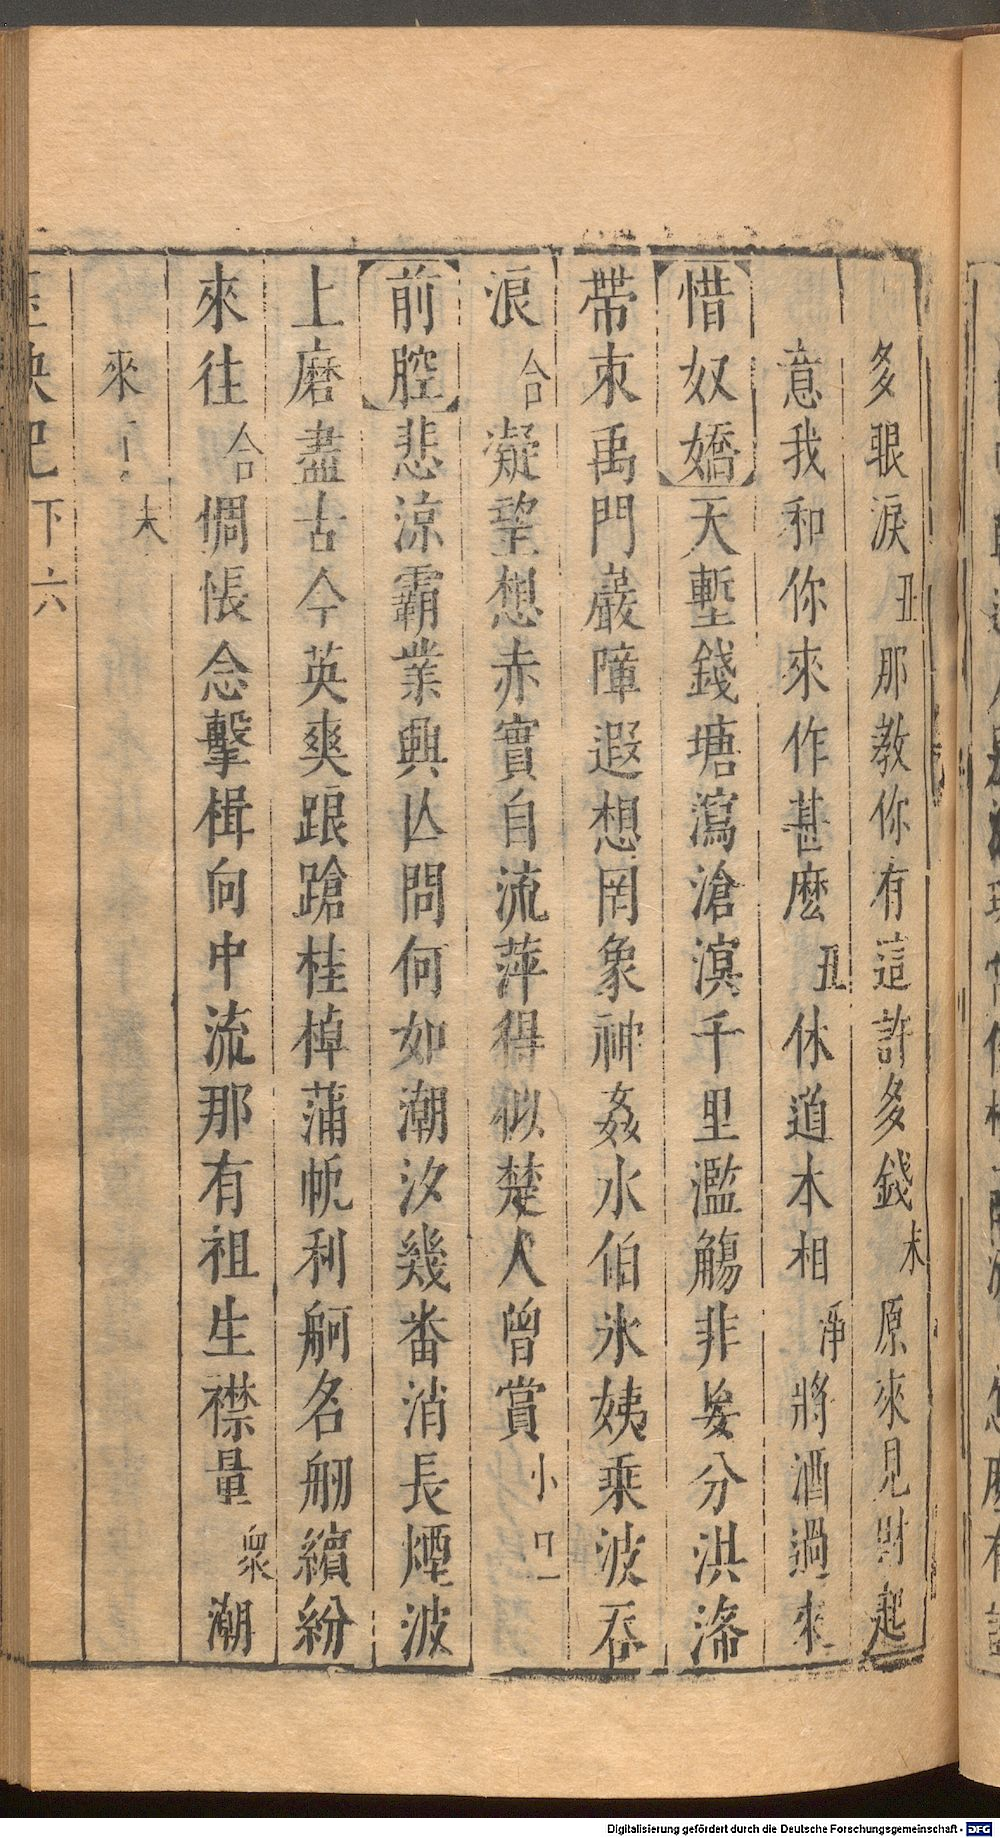 多眼淚丑那教你有這許多錢末原來見財起
意我和你來作甚麽丑休道本相淨將酒過來
惜奴嬌天塹錢塘瀉滄溟千里濫觴非妄分洪渧
帶束禹門巖障遐想罔象神姦水伯氷姨乘波吞
浪合凝望想赤實自流萍得似楚人曾賞小
前腔悲涼霸業興亾問何如潮汐幾番消長煙波
上磨盡古今英爽踉蹌桂棹蒲帆利舸名舠繽紛
來往合惆悵念擊楫向中流那有祖生襟量衆潮
來末
玉玦記下六
Digitalisierung gefördert durch die Deutsche Forschungsgemeinschaft - DFG